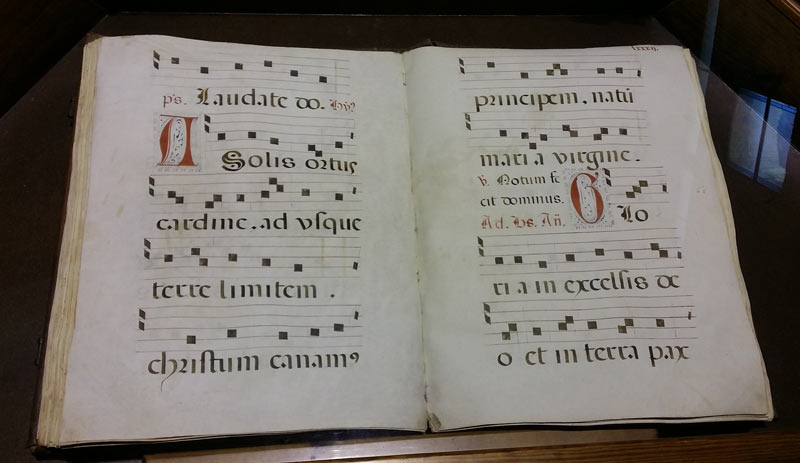 ps. Laudate do. hỹ
A Solis ortus
cardine. ad vsque
terre limitem .
christum canam9
lxxxij.
principem. natū
maria virgine.
v. Notum fe
cit dominus.
Ad. Bs. Añ. G Lo
ri a in excelsis de
o et in terra pax